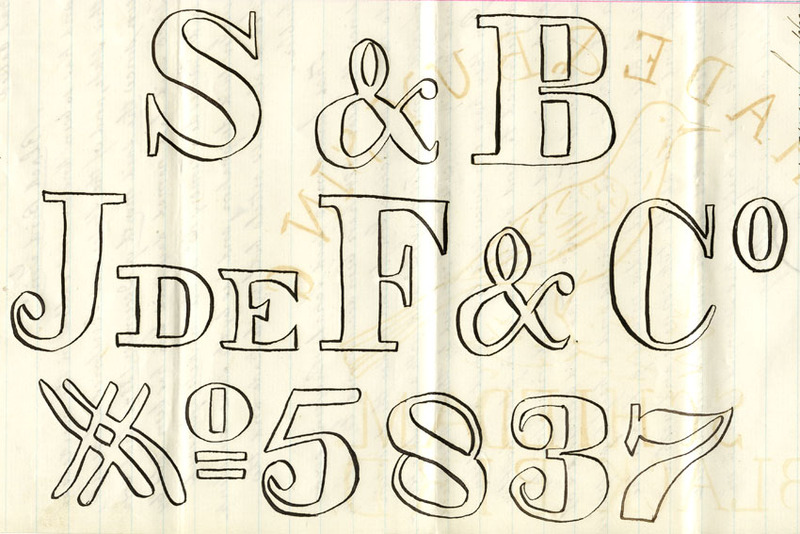 S & B
JDEF & Cº
Nº 5837